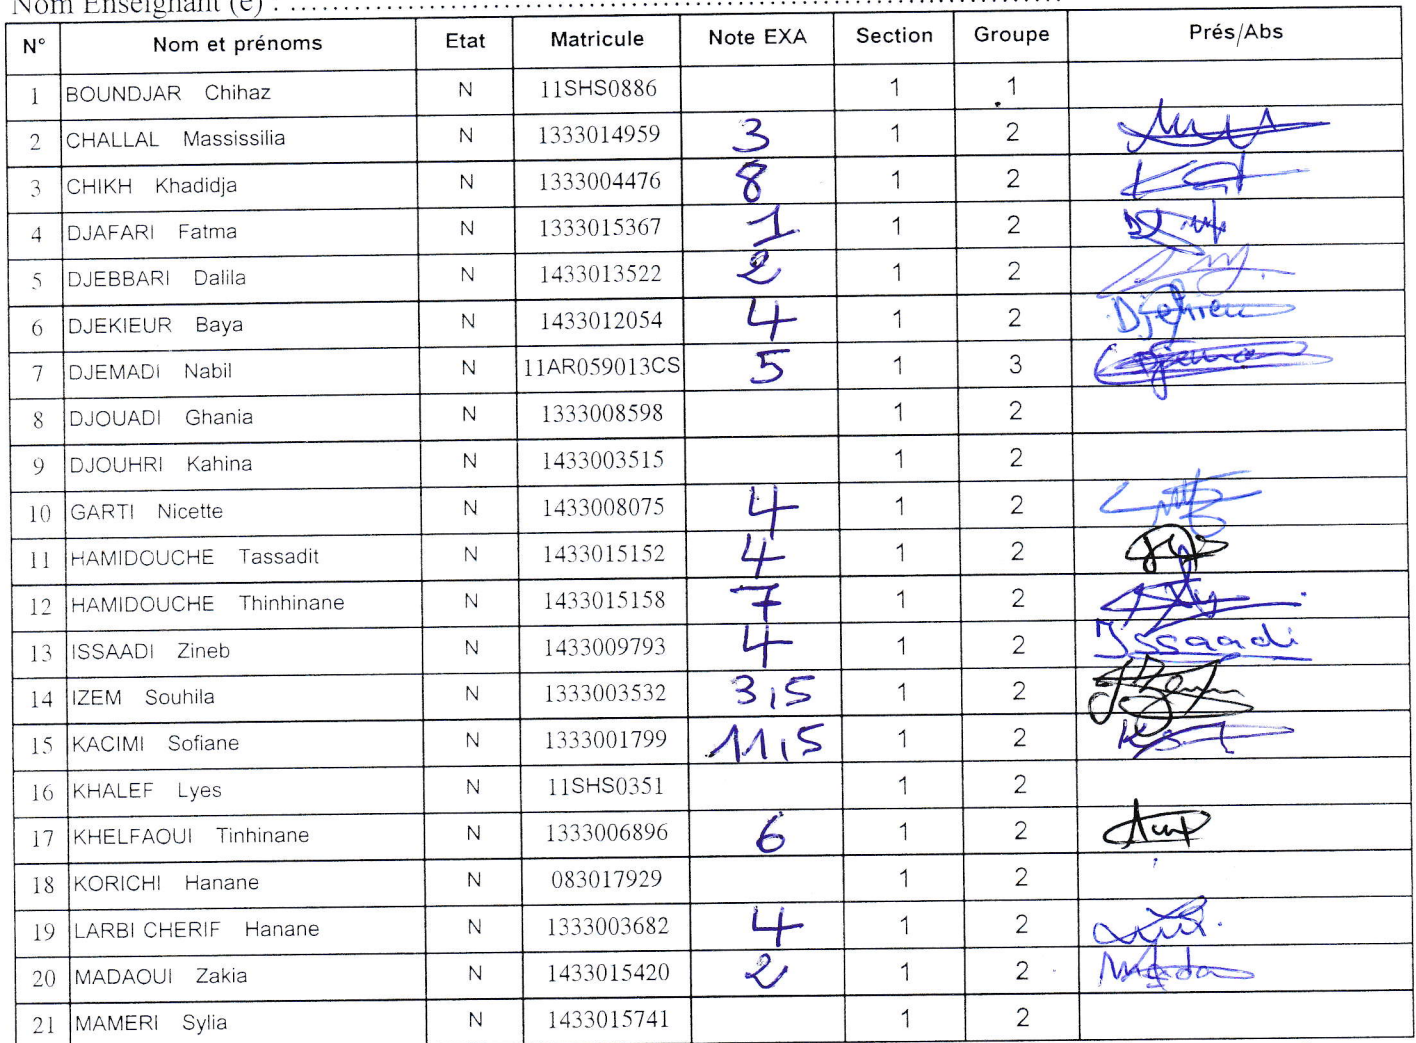 Nom Enseignant (e) : ..................................................
N° Nom et prénoms Etat Matricule Note EXA Section Groupe Prés/Abs
1 BOUNDJAR Chihaz N 11SHS0886 1 1
2 CHALLAL Massissilia N 1333014959 3 1 2
3 CHIKH Khadidja N 1333004476 8 1 2
4 DJAFARI Fatma N 1333015367 1 1 2
5 DJEBBARI Dalila N 1433013522 2 1 2
6 DJEKIEUR Baya N 1433012054 4 1 2
7 DJEMADI Nabil N 11AR059013CS 5 1 3
8 DJOUADI Ghania N 1333008598 1 2
9 DJOUHRI Kahina N 1433003515 1 2
10 GARTI Nicette N 1433008075 4 1 2
11 HAMIDOUCHE Tassadit N 1433015152 4 1 2
12 HAMIDOUCHE Thinhinane N 1433015158 7 1 2
13 ISSAADI Zineb N 1433009793 4 1 2 Issaadi
14 IZEM Souhila N 1333003532 3,5 1 2
15 KACIMI Sofiane N 1333001799 11,5 1 2
16 KHALEF Lyes N 11SHS0351 1 2
17 KHELFAOUI Tinhinane N 1333006896 6 1 2
18 KORICHI Hanane N 083017929 1 2
19 LARBI CHERIF Hanane N 1333003682 4 1 2
20 MADAOUI Zakia N 1433015420 2 1 2
21 MAMERI Sylia N 1433015741 1 2